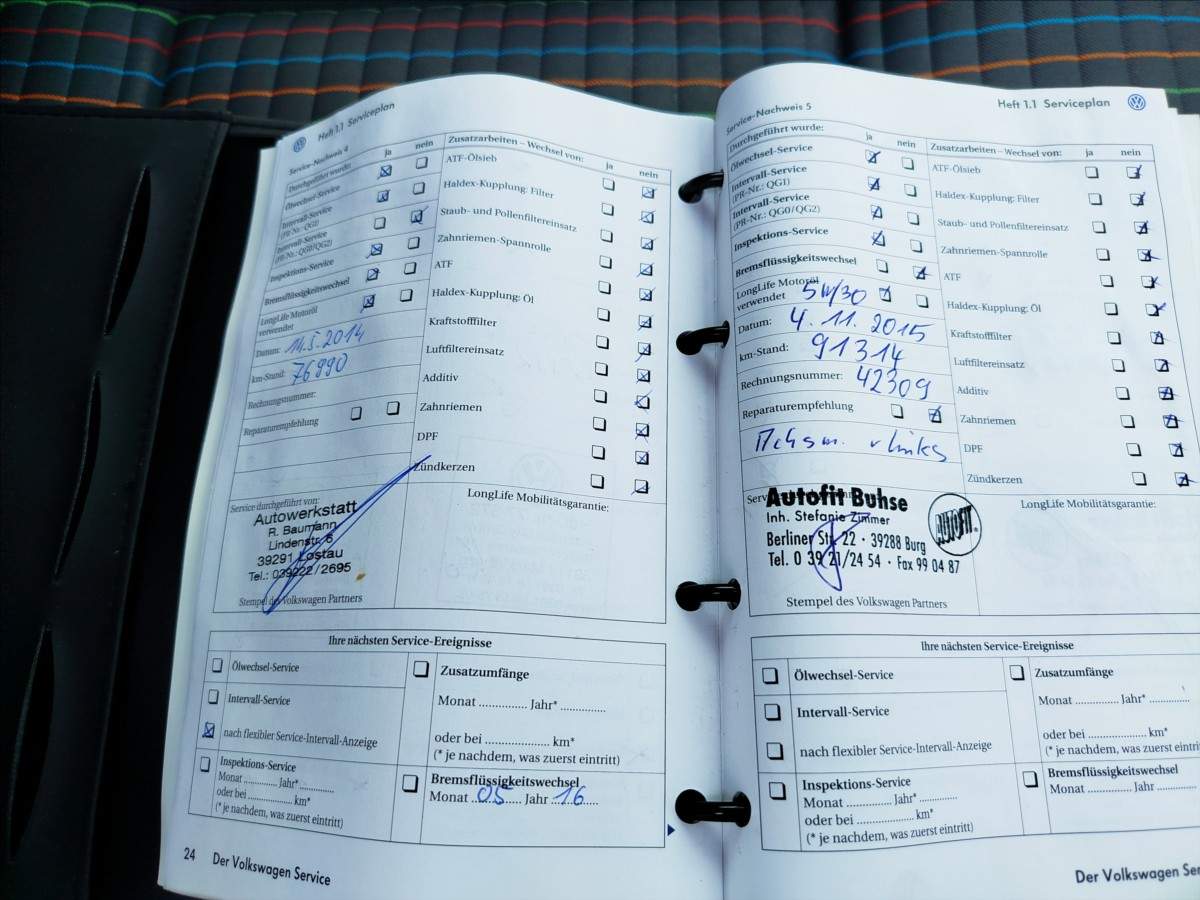 Heft 1.1 Serviceplan
Service-Nachweis 4
Durchgeführt wurde: ja nein
Ölwechsel-Service
Intervall-Service
(PR-Nr.: QG1)
Intervall-Service
(PR-Nr.: QG0/QG2)
Inspektions-Service
Bremsflüssigkeitswechsel
LongLife Motoröl
verwendet
Datum: 14.5.2014
km-Stand: 76990
Rechnungsnummer:
Reparaturempfehlung
Zusatzarbeiten – Wechsel von: ja nein
ATF-Ölsieb
Haldex-Kupplung: Filter
Staub- und Pollenfiltereinsatz
Zahnriemen-Spannrolle
ATF
Haldex-Kupplung: Öl
Kraftstofffilter
Luftfiltereinsatz
Additiv
Zahnriemen
DPF
Zündkerzen
Service durchgeführt von:
Autowerkstatt
R. Baumann
Lindenstr. 6
39291 Lostau
Tel.: 039222/2695
Stempel des Volkswagen Partners
LongLife Mobilitätsgarantie:
Ihre nächsten Service-Ereignisse
Ölwechsel-Service
Intervall-Service
nach flexibler Service-Intervall-Anzeige
Inspektions-Service
Monat .............. Jahr* ..............
oder bei .................... km*
(* je nachdem, was zuerst eintritt)
Zusatzumfänge
Monat .............. Jahr* ..............
oder bei .................... km*
(* je nachdem, was zuerst eintritt)
Bremsflüssigkeitswechsel
Monat 05 Jahr 16
24 Der Volkswagen Service
Heft 1.1 Serviceplan
Service-Nachweis 5
Durchgeführt wurde: ja nein
Ölwechsel-Service
Intervall-Service
(PR-Nr.: QG1)
Intervall-Service
(PR-Nr.: QG0/QG2)
Inspektions-Service
Bremsflüssigkeitswechsel
LongLife Motoröl
verwendet 5W/30
Datum: 4.11.2015
km-Stand: 91314
Rechnungsnummer: 42309
Reparaturempfehlung
links
Zusatzarbeiten – Wechsel von: ja nein
ATF-Ölsieb
Haldex-Kupplung: Filter
Staub- und Pollenfiltereinsatz
Zahnriemen-Spannrolle
ATF
Haldex-Kupplung: Öl
Kraftstofffilter
Luftfiltereinsatz
Additiv
Zahnriemen
DPF
Zündkerzen
Autofit Buhse
Inh. Stefanie Zimmer
Berliner Str. 22 · 39288 Burg
Tel. 0 39 21/24 54 · Fax 99 04 87
AUTOFIT.
Stempel des Volkswagen Partners
LongLife Mobilitätsgarantie:
Ihre nächsten Service-Ereignisse
Ölwechsel-Service
Intervall-Service
nach flexibler Service-Intervall-Anzeige
Inspektions-Service
Monat .............. Jahr* ..............
oder bei .................... km*
(* je nachdem, was zuerst eintritt)
Zusatzumfänge
Monat .............. Jahr* ..............
oder bei .................... km*
(* je nachdem, was zuerst eintritt)
Bremsflüssigkeitswechsel
Monat .............. Jahr ..............
Der Volkswagen Ser